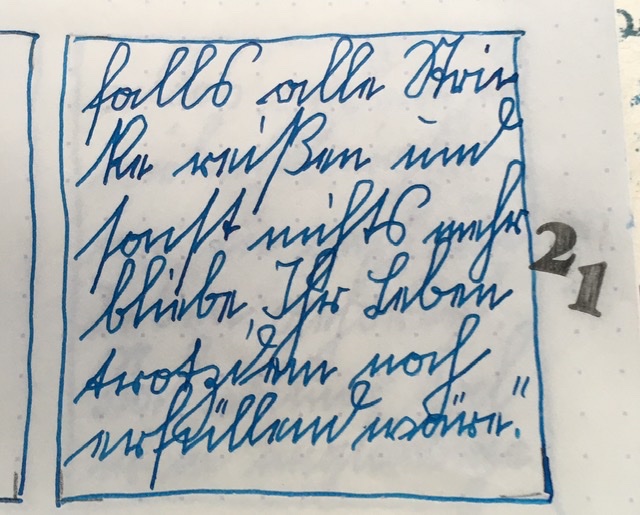 falls alle Stric
ke reißen und
sonst nichts mehr
bliebe, Ihr Leben
trotzdem noch
erfüllend wäre."
21